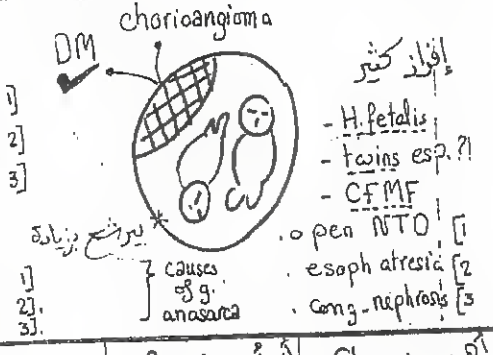 chorioangioma
DM
إفراز كثير
1]
2]
3]
- H. fetalis
- twins esp. ?!
- CFMF
. open NTD [1
. esoph atresia [2
. cong. nephrosis [3
* بيرشح بزيادة
1]
2].
3].
causes
of g.
anasarca